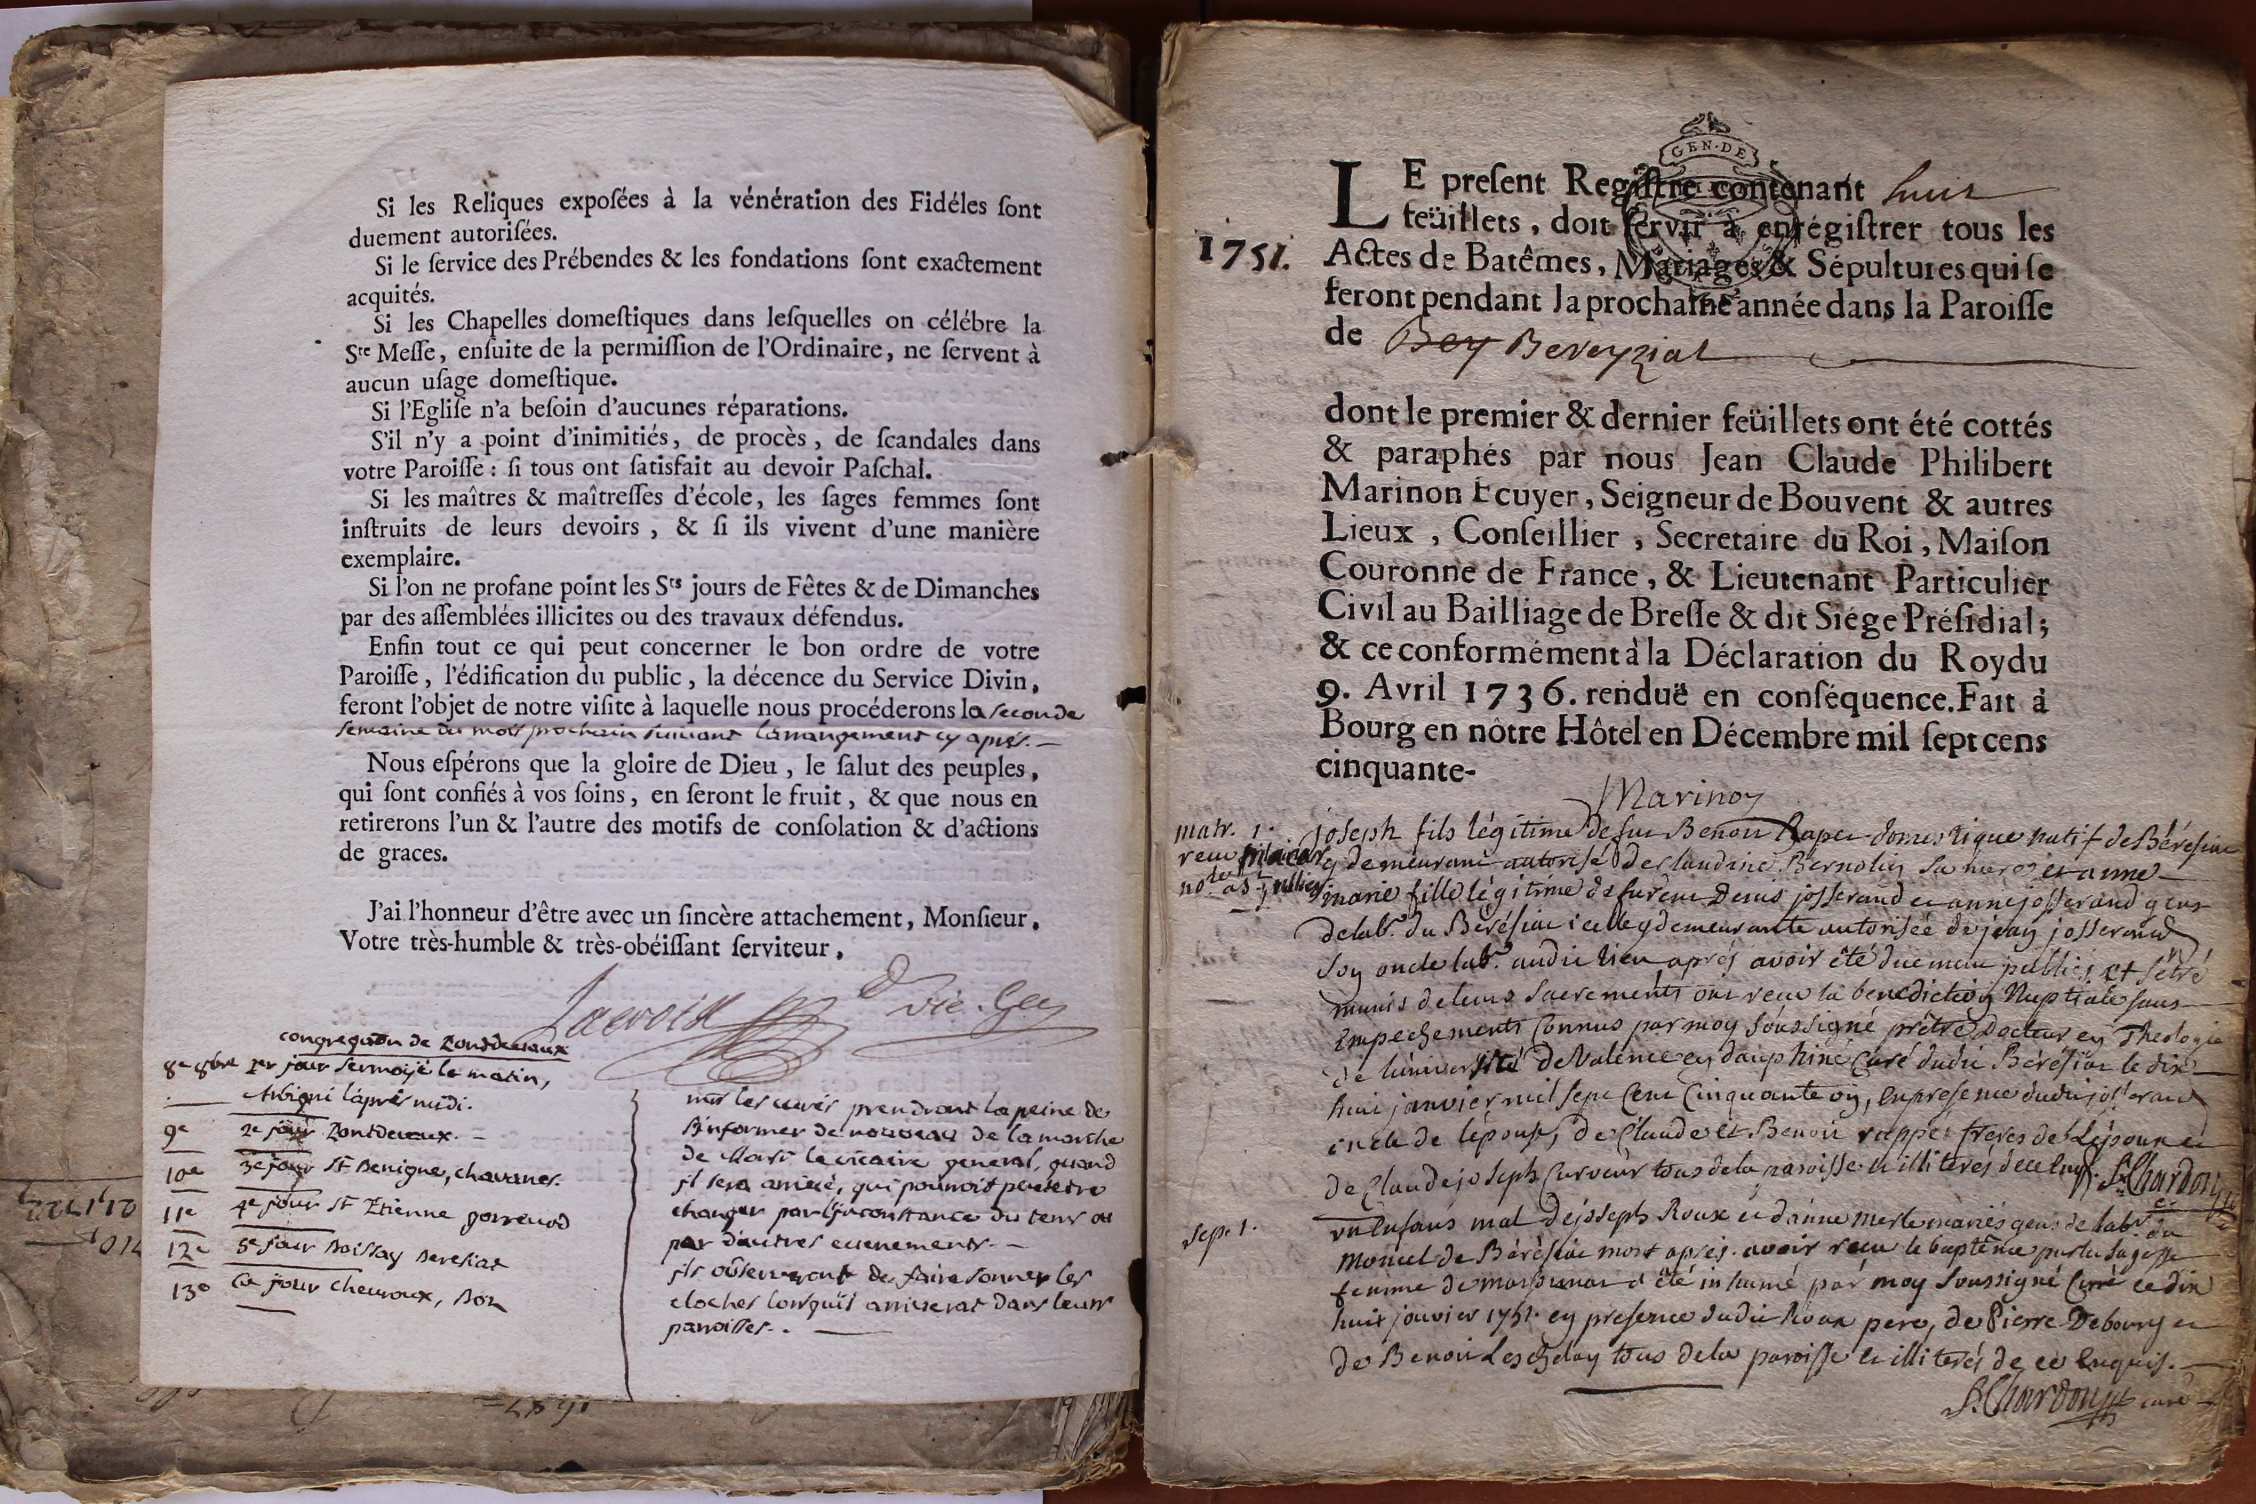 Si les Reliques exposées à la vénération des Fidéles sont
duement autorisées.
Si le service des Prébendes & les fondations sont exactement
acquités.
Si les Chapelles domestiques dans lesquelles on célébre la
Ste Messe, ensuite de la permission de l'Ordinaire, ne servent à
aucun usage domestique.
Si l'Eglise n'a besoin d'aucunes réparations.
S'il n'y a point d'inimitiés, de procès, de scandales dans
votre Paroisse : si tous ont satisfait au devoir Paschal.
Si les maîtres & maîtresses d'école, les sages femmes sont
instruits de leurs devoirs, & si ils vivent d'une manière
exemplaire.
Si l'on ne profane point les Srs jours de Fêtes & de Dimanches
par des assemblées illicites ou des travaux défendus.
Enfin tout ce qui peut concerner le bon ordre de votre
Paroisse, l'édification du public, la décence du Service Divin,
feront l'objet de notre visite à laquelle nous procéderons la seconde
semaine du mois prochain suivant l'arrangement cy après. —
Nous espérons que la gloire de Dieu, le salut des peuples,
qui sont confiés à vos soins, en seront le fruit, & que nous en
retirerons l'un & l'autre des motifs de consolation & d'actions
de graces.
J'ai l'honneur d'être avec un sincère attachement, Monsieur,
Votre très-humble & très-obéissant serviteur,
Lacroix Vic. Gen
congregaon de pontdevaux
8e 8bre 1er jour sermoyé le matin,
Arbigni l'après midi.
9e 2e jour pontdevaux. —
10e 3e jour St Benigne, chavanes.
11e 4e jour St Etienne gorrevod
12e 5e jour Boissay Beresiat
13e 6e jour chevroux, Boz
mrs les curés prendront la peine de
s'informer de nouveau de la marche
de Mosr le vicaire general, quand
il sera arrivé, qui pourroit peutetre
changer par l'inconstance du tems ou
par d'autres evenements. —
ils observeront de faire sonner les
cloches lorsquil arrivera dans leurs
paroisses. . —
GEN·DE
LE present Registre contenant huit
feüillets, doit servir à enrégistrer tous les
1751.
Actes de Batêmes, Mariages & Sépultures qui se
feront pendant la prochaine année dans la Paroisse
de Bey Bereyziat
dont le premier & dernier feüillets ont été cottés
& paraphés par nous Jean Claude Philibert
Marinon Ecuyer, Seigneur de Bouvent & autres
Lieux, Conseillier, Secretaire du Roi, Maison
Couronne de France, & Lieutenant Particulier
Civil au Bailliage de Bresse & dit Siége Présidial;
& ce conformément à la Déclaration du Roy du
9. Avril 1736. renduë en conséquence. Fait à
Bourg en nôtre Hôtel en Décembre mil sept cens
cinquante-
Marinon
matr. 1.
joseph fils légitime de feu Benoit Raper domestique natif de Bérésiat
y demeurant autorisé de claudine Bernolin sa mere et anne
marie fille légitime de feu Denis josserand et anne josserand gens
de labr. du Bérésiat icelle y demeurante autorisée de jean josserand
son oncle labr. audit lieu après avoir été duement publiés et s'etre
munis de leurs sacrements ont reçu la benediction Nuptiale sans
empechements connus par moy soussigné prêtre docteur en Theologie
de l'université de Valence en dauphiné Curé dudit Bérésiat le dix
huit janvier mil sept cent cinquante un, en presence dudit josserand
oncle de l'épouse, de Claude et Benoit rapper freres de l'époux et
de Claude joseph Curveur tous de la paroisse et illiterés de ce enquis. S. Chardon
Sep. 1.
un enfans mal de joseph Roux et d'anne merle mariés gens de labr. du
Moncel de Bérésiat mort après avoir reçu le baptême par la sagesse
femme de a été inhumé par moy soussigné Curé ce dix
huit janvier 1751. en presence dudit Roux pere, de Pierre Debourg et
de Benoit tous de la paroisse et illiterés de ce enquis. —
S. Chardon curé